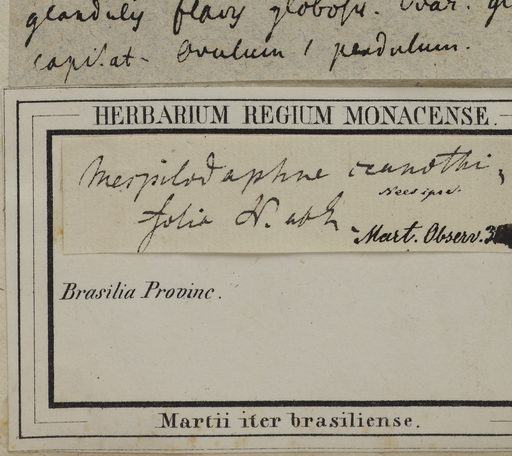 glandulis flavis globosis. Ovar. gl
capitat. Ovulum 1 pendulum.
HERBARIUM REGIUM MONACENSE.
Mespilodaphne ceanothi-
Nees ipse.
folia N. ab E.
Mart. Observ. 3
Brasilia Provinc.
Martii iter brasiliense.